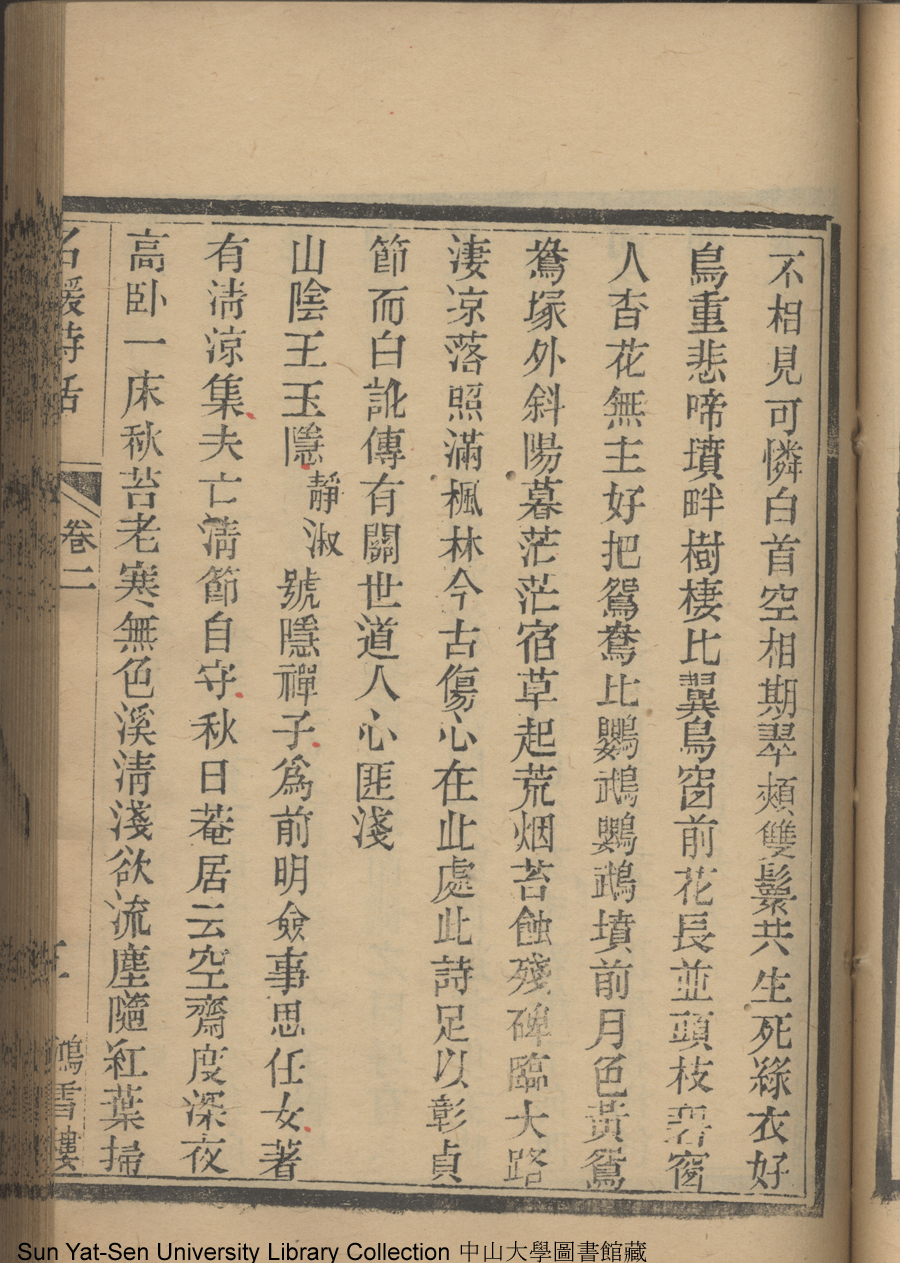 不相見可憐白首空相期翠頰雙鬟共生死綠衣好
鳥重悲啼墳畔樹棲比翼鳥窗前花長並頭枝碧窗
人杳花無主好把鴛鴦比鸚鵡鸚鵡墳前月色黃鴛
鴦塚外斜陽暮茫茫宿草起荒烟苔蝕殘碑臨大路
淒凉落照滿楓林今古傷心在此處此詩足以彰貞
節而白訛傳有關世道人心匪淺
山陰王玉隱靜淑號隱禪子爲前明僉事思任女著
有淸凉集夫亡淸節自守秋日菴居云空齋度深夜
高卧一床秋苔老寒無色溪淸淺欲流塵隨紅葉掃
名媛詩話 卷二 鴻雪樓
Sun Yat-Sen University Library Collection 中山大學圖書館藏